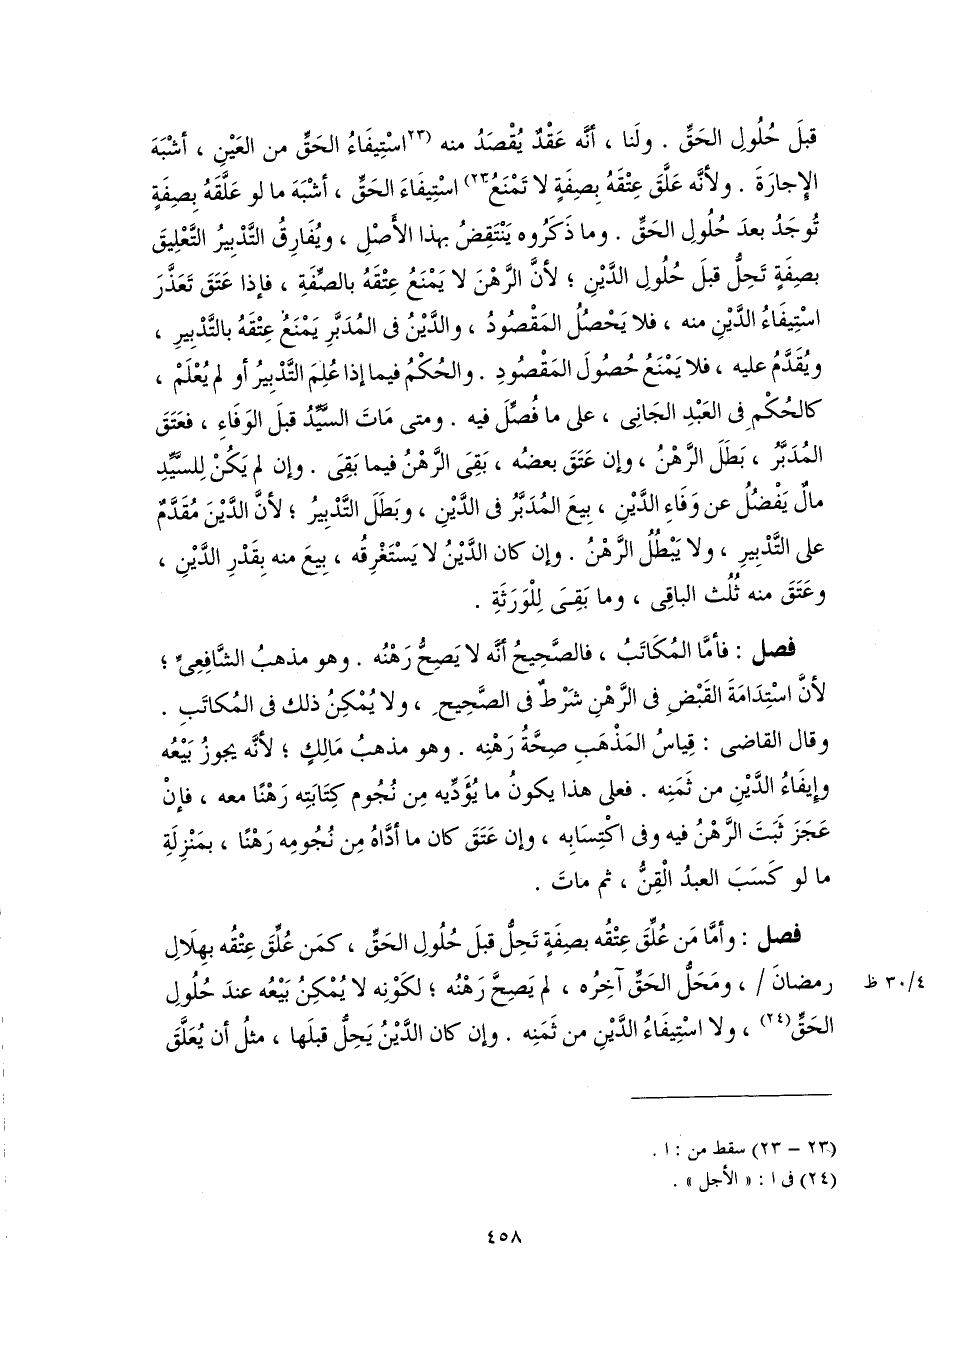 قبلَ حُلُولِ الحَقِّ . ولَنا ، أنَّه عَقْدٌ يُقْصَدُ منه (٢٣اسْتِيفَاءُ الحَقِّ من العَيْنِ ، أشْبَهَ
الإِجارَةَ . ولأنَّه عَلَّقَ عِتْقَهُ بِصِفَةٍ لا تَمْنَعُ٢٣) اسْتِيفَاءَ الحَقِّ ، أشْبَهَ ما لو عَلَّقَهُ بِصِفَةٍ
تُوجَدُ بعدَ حُلُولِ الحَقِّ . وما ذَكَرُوه يَنْتَقِضُ بهذا الأَصْلِ ، ويُفَارِقُ التَّدْبِيرُ التَّعْلِيقَ
بصِفَةٍ تَحِلُّ قبلَ حُلُولِ الدَّيْنِ ؛ لأنَّ الرَّهْنَ لا يَمْنَعُ عِتْقَهُ بالصِّفَةِ ، فإذا عَتَقَ تَعَذَّرَ
اسْتِيفَاءُ الدَّيْنِ منه ، فلا يَحْصُلُ المَقْصُودُ ، والدَّيْنُ فى المُدَبَّرِ يَمْنَعُ عِتْقَهُ بالتَّدْبِيرِ ،
ويُقَدَّمُ عليه ، فلا يَمْنَعُ حُصُولَ المَقْصُودِ . والحُكْمُ فيما إذا عُلِمَ التَّدْبِيرُ أو لم يُعْلَمْ ،
كالحُكْمِ فى العَبْدِ الجَانِى ، على ما فُصِّلَ فيه . ومتى مَاتَ السَّيِّدُ قبلَ الوَفَاءِ ، فعَتَقَ
المُدَبَّرُ ، بَطَلَ الرَّهْنُ ، وإن عَتَقَ بعضُه ، بَقِىَ الرَّهْنُ فيما بَقِىَ . وإن لم يَكُنْ لِلسَّيِّدِ
مالٌ يَفْضُلُ عن وَفَاءِ الدَّيْنِ ، بِيعَ المُدَبَّرُ فى الدَّيْنِ ، وبَطَلَ التَّدْبِيرُ ؛ لأنَّ الدَّيْنَ مُقَدَّمٌ
على التَّدْبِيرِ ، ولا يَبْطُلُ الرَّهْنُ . وإن كان الدَّيْنُ لا يَسْتَغْرِقُه ، بِيعَ منه بِقَدْرِ الدَّيْنِ ،
وعَتَقَ منه ثُلُث الباقِى ، وما بَقِىَ لِلْوَرَثَةِ .
فصل : فأمَّا المُكَاتَبُ ، فالصَّحِيحُ أنَّه لا يَصِحُّ رَهْنُه . وهو مذهبُ الشَّافِعِىِّ ؛
لأنَّ اسْتِدَامَةَ القَبْضِ فى الرَّهْنِ شَرْطٌ فى الصَّحِيحِ ، ولا يُمْكِنُ ذلك فى المُكاتَبِ .
وقال القاضى : قِياسُ المَذْهَبِ صِحَّةُ رَهْنِه . وهو مذهبُ مَالِكٍ ؛ لأنَّه يجوزُ بَيْعُه
وإِيفَاءُ الدَّيْنِ من ثَمَنِه . فعلى هذا يكونُ ما يُؤَدِّيه مِن نُجُومِ كِتَابَتِه رَهْنًا معه ، فإنْ
عَجَزَ ثَبَتَ الرَّهْنُ فيه وفى اكْتِسَابِه ، وإن عَتَقَ كان ما أدَّاهُ مِن نُجُومِه رَهْنًا ، بمَنْزِلَةِ
ما لو كَسَبَ العبدُ الْقِنُّ ، ثم ماتَ .
فصل : وأمَّا مَن عُلِّقَ عِتْقُه بصِفَةٍ تَحِلُّ قبلَ حُلُولِ الحَقِّ ، كمَن عُلِّقَ عِتْقُه بِهِلَالِ
رمضانَ / ، ومَحَلُّ الحَقِّ آخِرُه ، لم يَصِحَّ رَهْنُه ؛ لكَوْنِه لا يُمْكِنُ بَيْعُه عندَ حُلُولِ ٣٠/٤ ظ
الحَقِّ(٢٤) ، ولا اسْتِيفَاءُ الدَّيْنِ من ثَمَنِه . وإن كان الدَّيْنُ يَحِلُّ قبلَها ، مثلُ أن يُعَلَّقَ
(٢٣ – ٢٣) سقط من : ا .
(٢٤) فى ا : « الأجل » .
٤٥٨